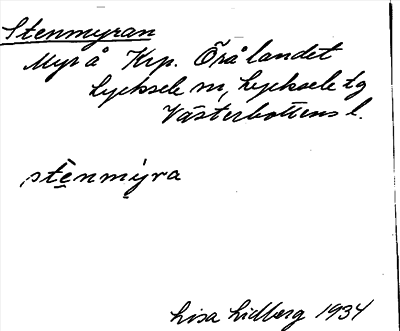 Stenmyran
Myr å Krp. Örålandet
Lycksele m, Lycksele tg
Västerbottens l.
stenmýra
Lisa Lidberg 1934